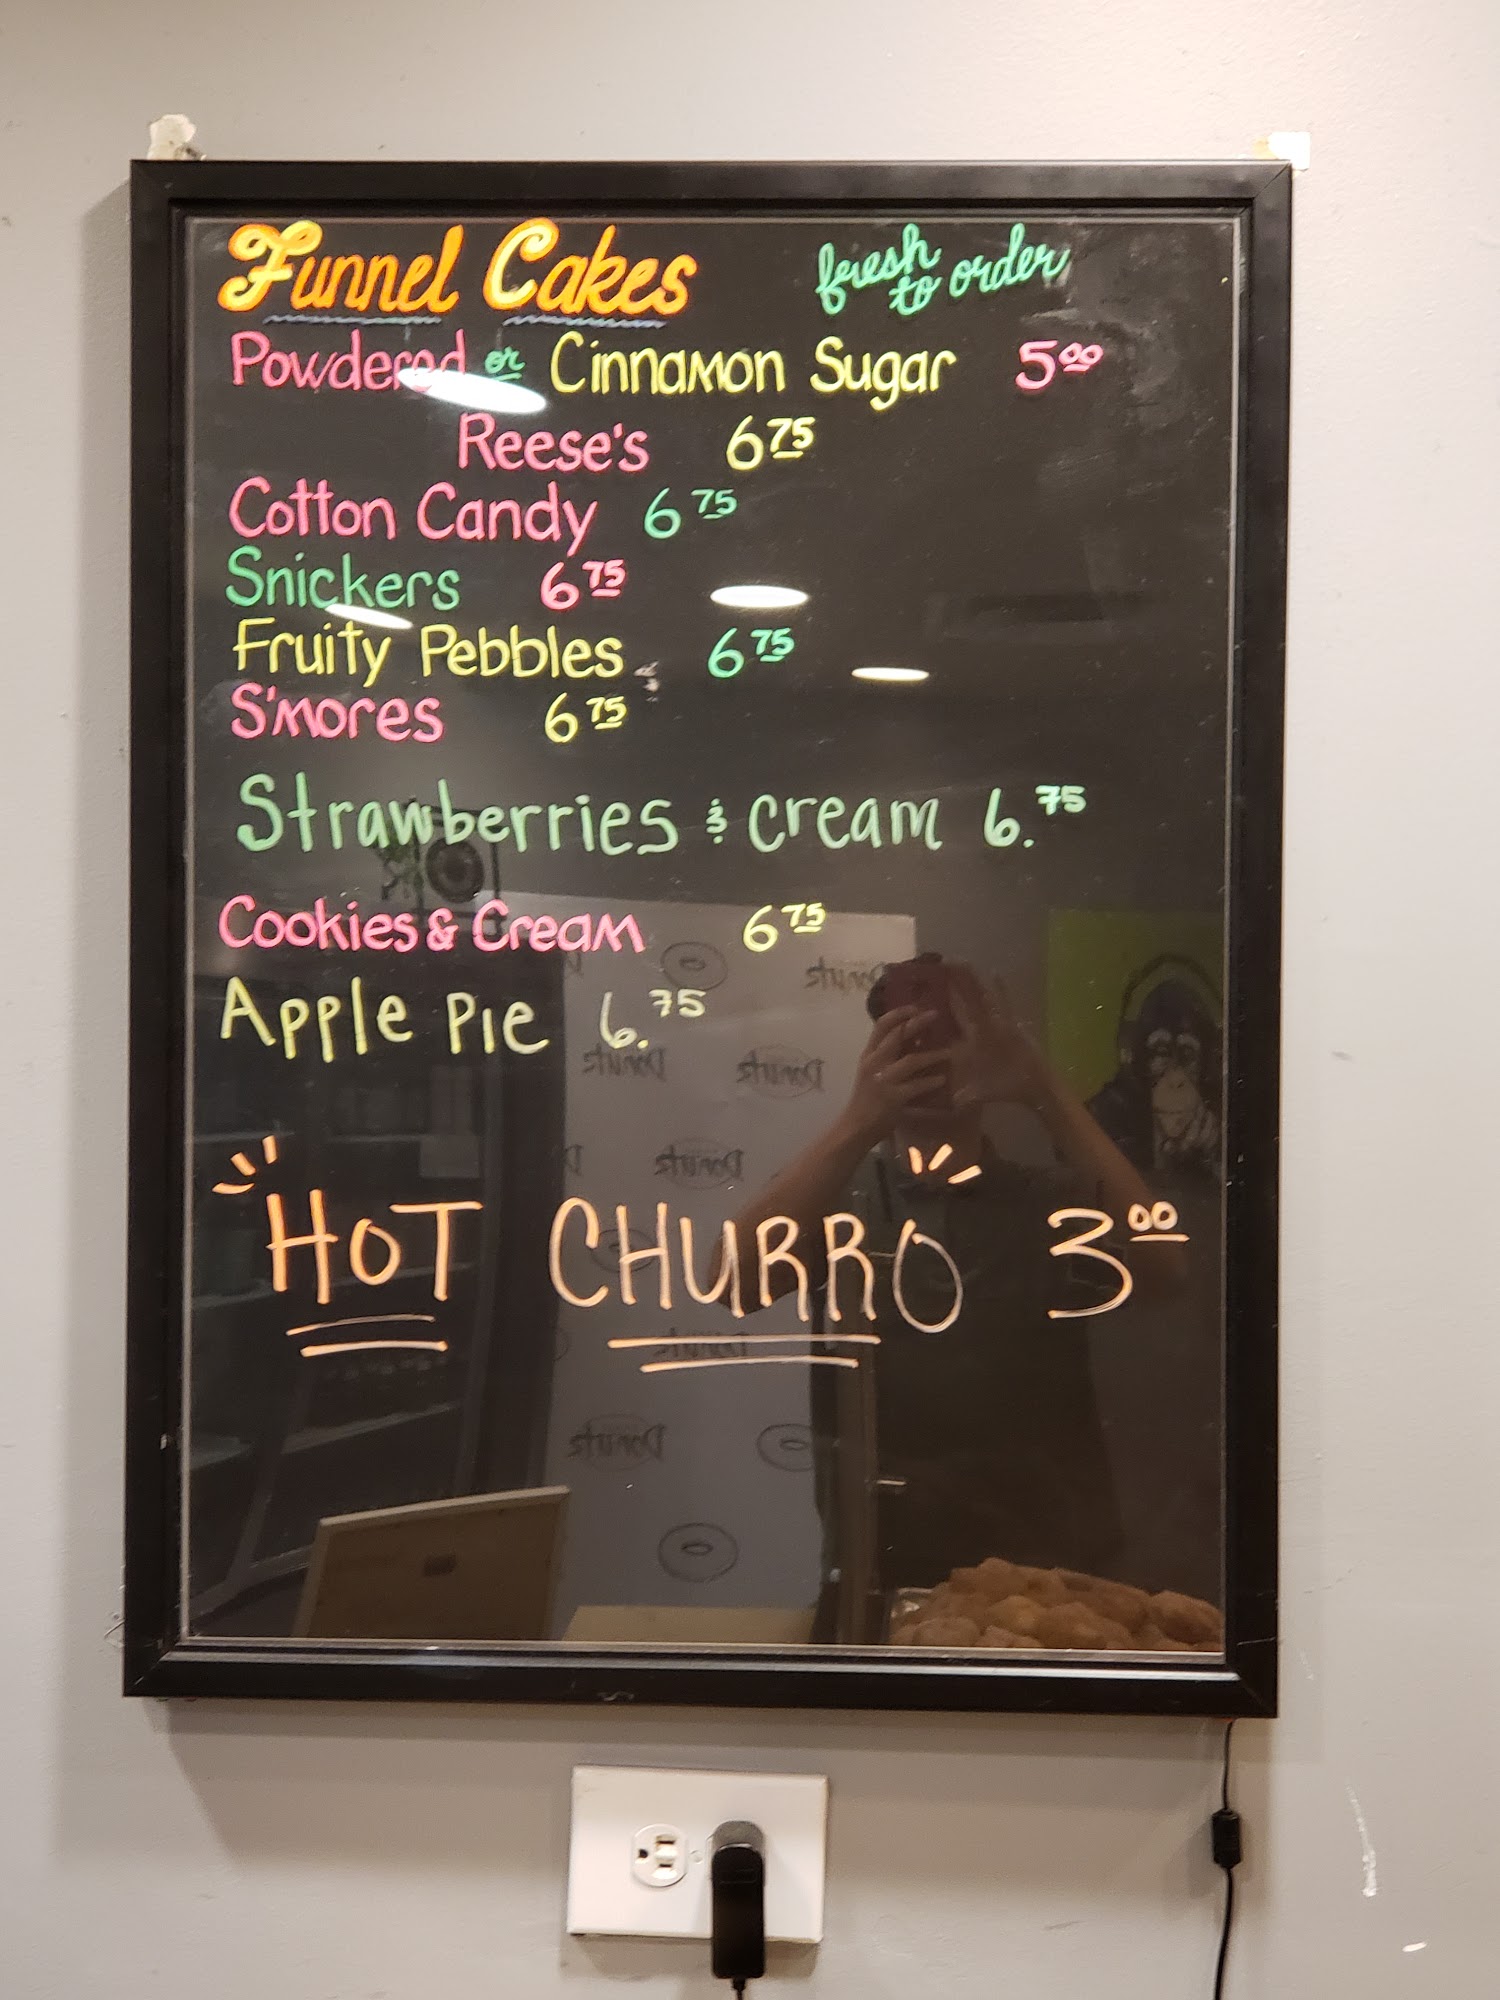 Funnel Cakes fresh to order
Powdered or Cinnamon Sugar 5.00
Reese's 6.75
Cotton Candy 6.75
Snickers 6.75
Fruity Pebbles 6.75
S'mores 6.75
Strawberries & cream 6.75
Cookies & Cream 6.75
Apple Pie 6.75
HOT CHURRO 3.00
Donuts
Donuts Donuts
Donuts
Donuts
Donuts